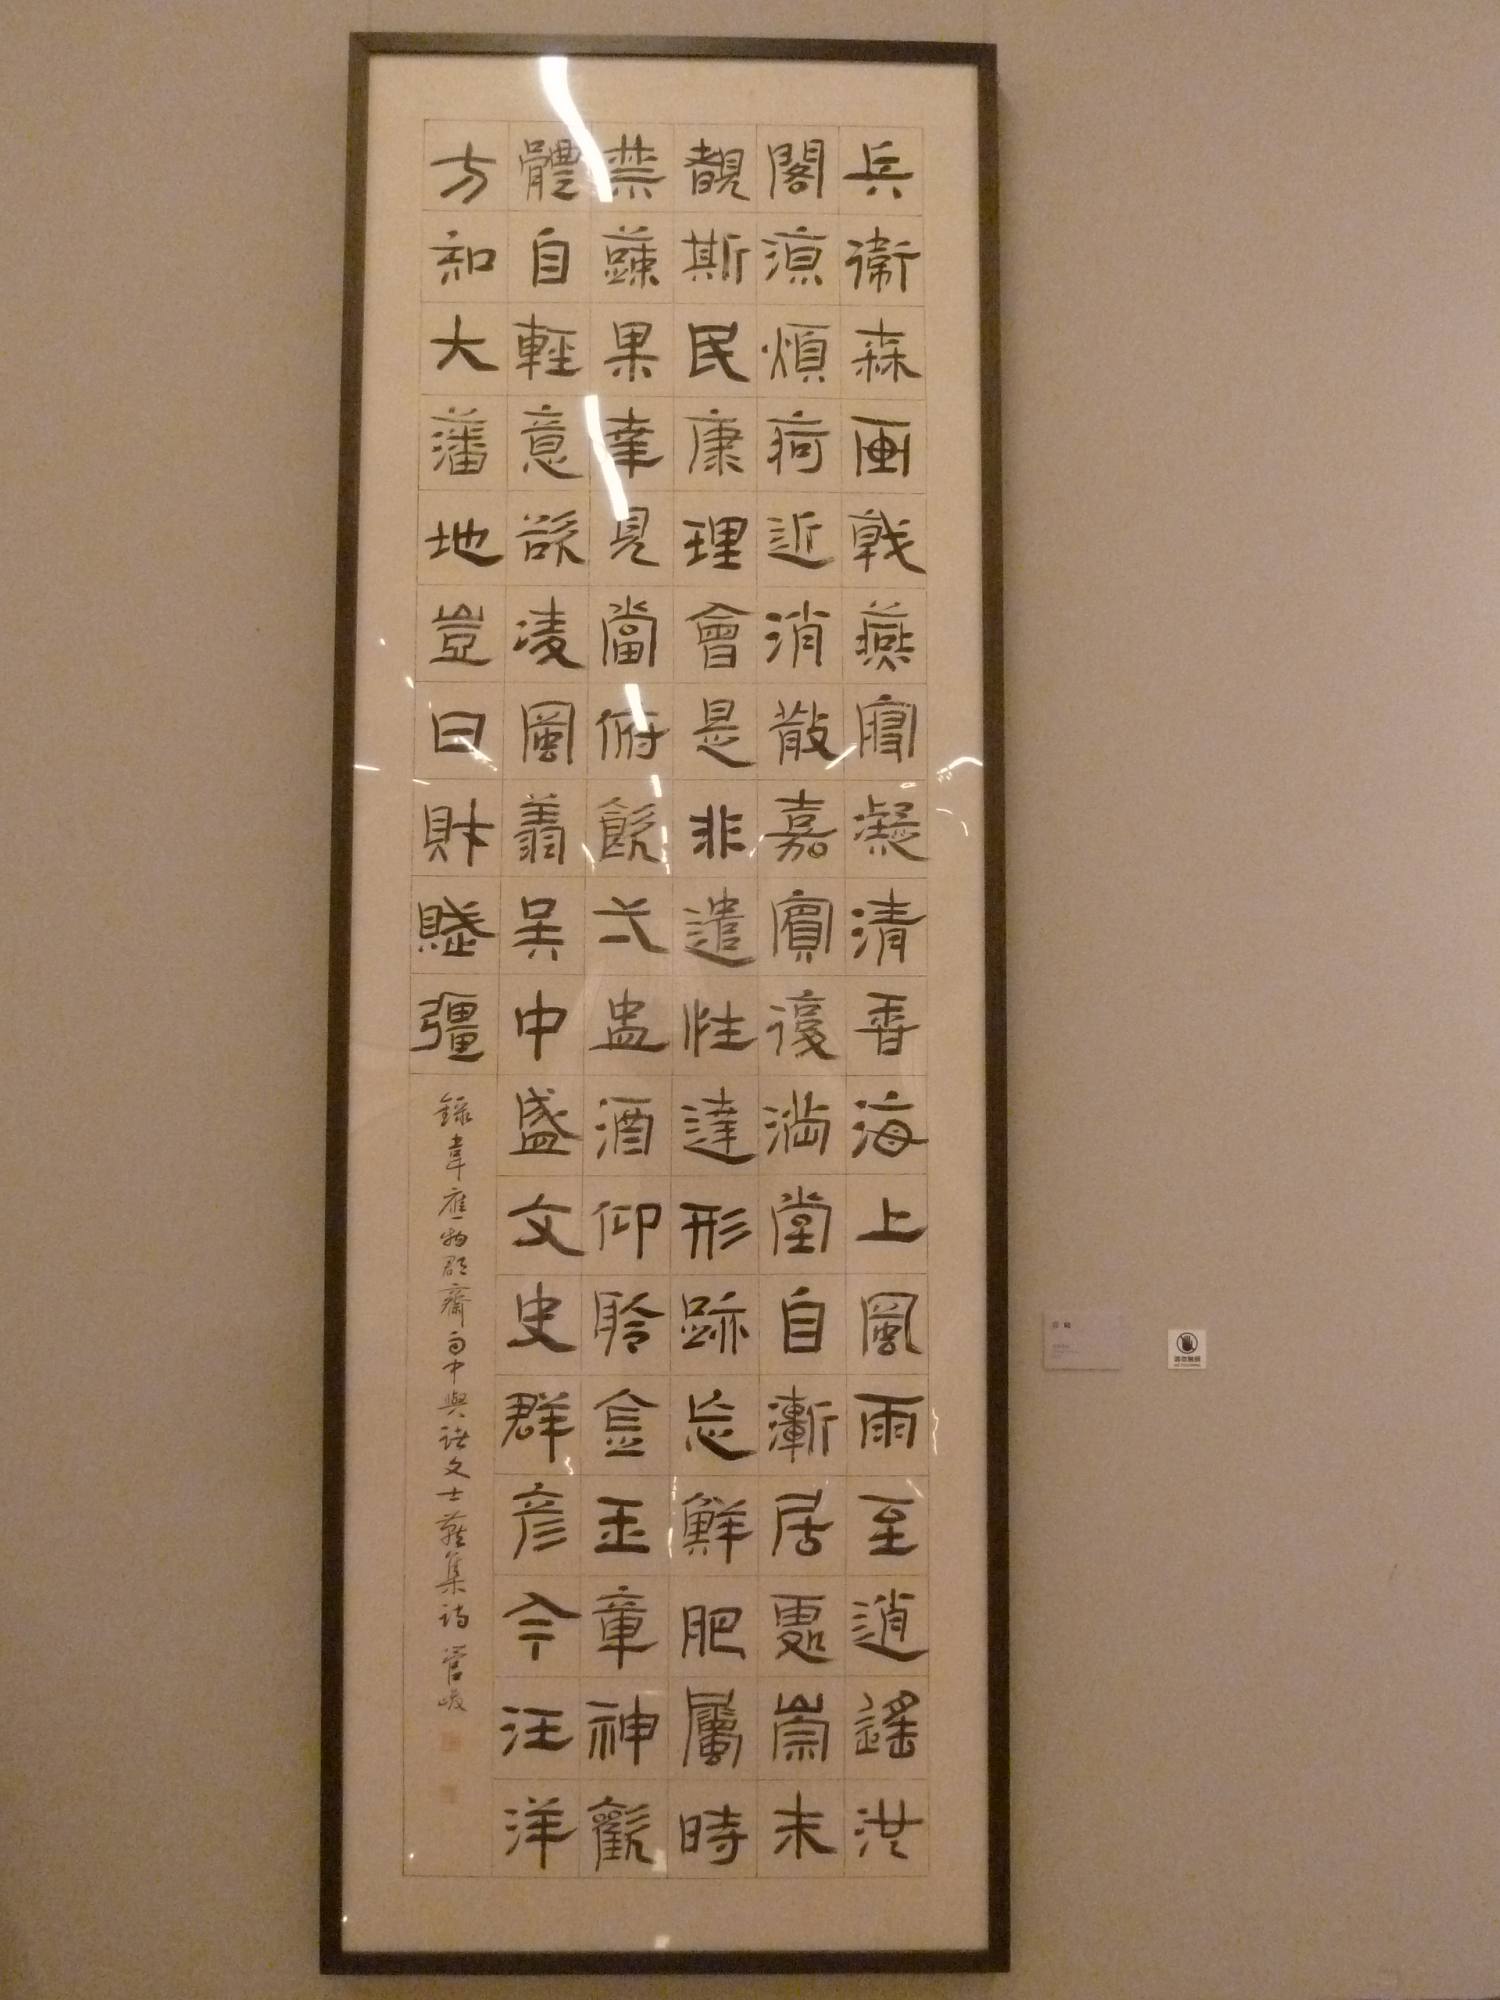 兵衛森画戟燕寢凝清香海上風雨至逍遙池
閣涼煩疴近消散嘉賓復滿堂自漸居處崇未
覩斯民康理會是非遣性達形跡忘鮮肥屬時
禁蔬果幸見當俯飲一盃酒仰聆金玉章神歡
體自輕意欲凌風翥吳中盛文史群彥今汪洋
方知大藩地豈曰財賦彊
錄韋應物郡齋雨中與諸文士燕集詩 管峻